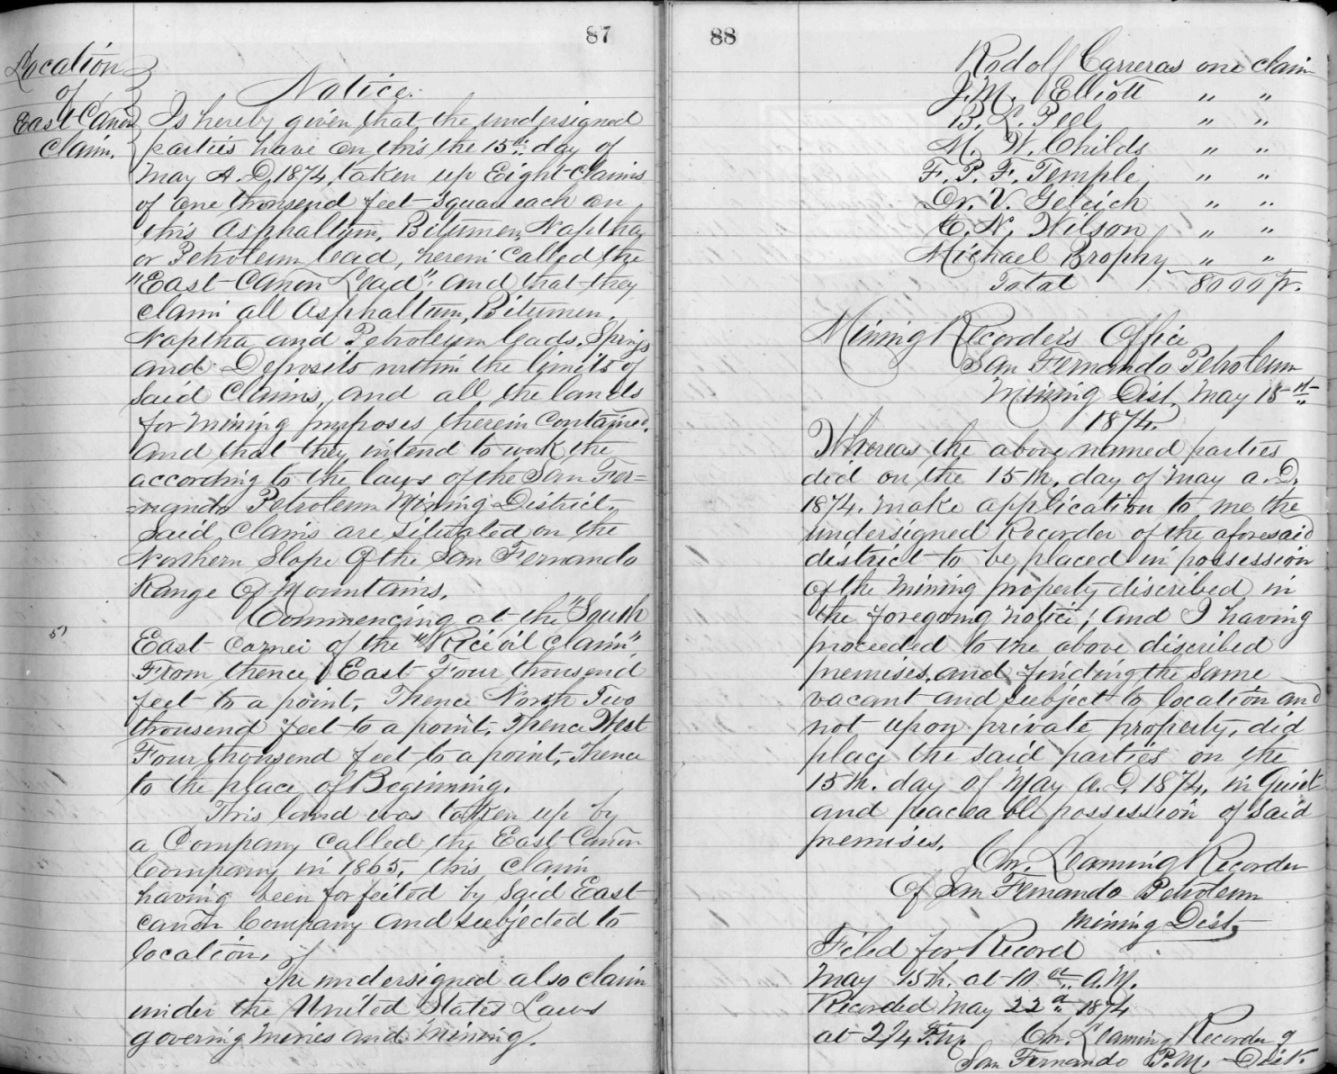 87
Location
of
East Cañon
Claim.
Notice.
Is hereby given that the undersigned
parties have on this the 15th day of
May A.D. 1874, taken up Eight Claims
of one thousend feet Squar each on
this Asphaltum, Bitumen, Naptha
or Petroleum lead, herein Called the
"East Canon Lead". And that they
claim all Asphaltum, Bitumen,
Naptha and Petroleum leads, Springs
and Deposits within the limits of
said Claims, and all the lands
for Mining purposes therein Contained.
And that they intend to work the
according to the laws of the San Fer=
=nando Petroleum Mining District.
Said Claims are situated on the
Northern Slope of the San Fernando
Range of Mountains.
Commencing at the South
East corner of the "Rice oil Claim".
From thence East Four thousend
feet to a point. Thence North Two
thousend feet to a point, Thence West
Four thousend feet to a point, Thence
to the place of Beginning.
This land was taken up by
a Company called the East Cañon
Company in 1865, this Claim
having been forfeited by Said East
cañon Company and subjected to
location.
The undersigned also claim
under the United States Laws
govering Mines and Mining.
88
Rodolf Carreras one claim
J. M. Elliott " "
B. L. Peel " "
M. W. Childs " "
F. P. F. Temple " "
Dr. V. Gelcich " "
E. N. Wilson " "
Michael Brophy " "
Total 8000 ft.
Mining Recorder's Office
San Fernando Petroleum
Mining Dist. May 18th
1874.
Whereas the above named parties
did on the 15th. day of May A.D.
1874. make application to me the
undersigned Recorder of the aforesaid
district to be placed in possession
of the mining property discribed in
the foregoing notice; And I having
proceeded to the above discribed
premises, and finding the same
vacant and subject to location and
not upon private property, did
place the said parties on the
15th. day of May A.D. 1874, in Quiet
and peaceable possession of Said
premises.
Chr. Leaming Recorder
Of San Fernando Petroleum
Mining Dist.
Filed for Record
May 15th. at A.M.
Recorded May 22d 1874
at 2/4 P.M. Chr. Leaming Recorder of
San Fernando P.M. Dist.